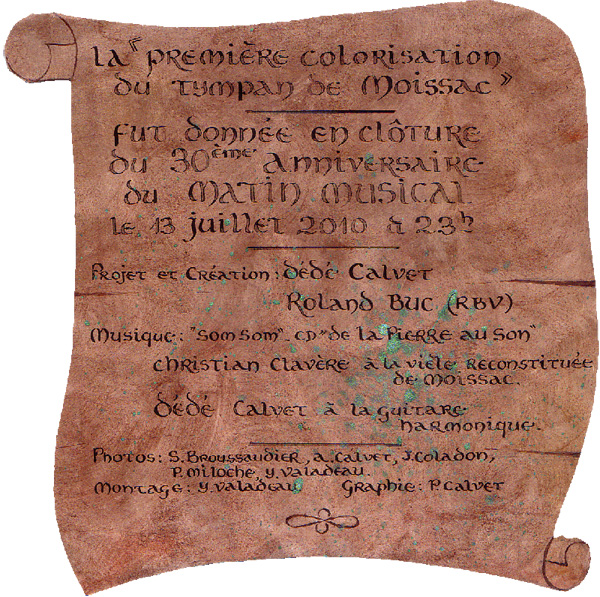 La "première colorisation
du tympan de Moissac"
fut donnée en clôture
du 30ème Anniversaire
du MATIN MUSICAL
le 13 juillet 2010 à 23h
Projet et Création : dédé Calvet
Roland Buc (RBV)
Musique : "SOMSOM" - CD "de la Pierre au Son"
Christian Clavère à la vièle reconstituée
de Moissac.
dédé Calvet à la guitare
harmonique.
Photos : S. Broussaudier, A. Calvet, J. Coladon,
P. Miloche, Y. Valadeau.
Montage : Y. Valadeau Graphie : P. Calvet